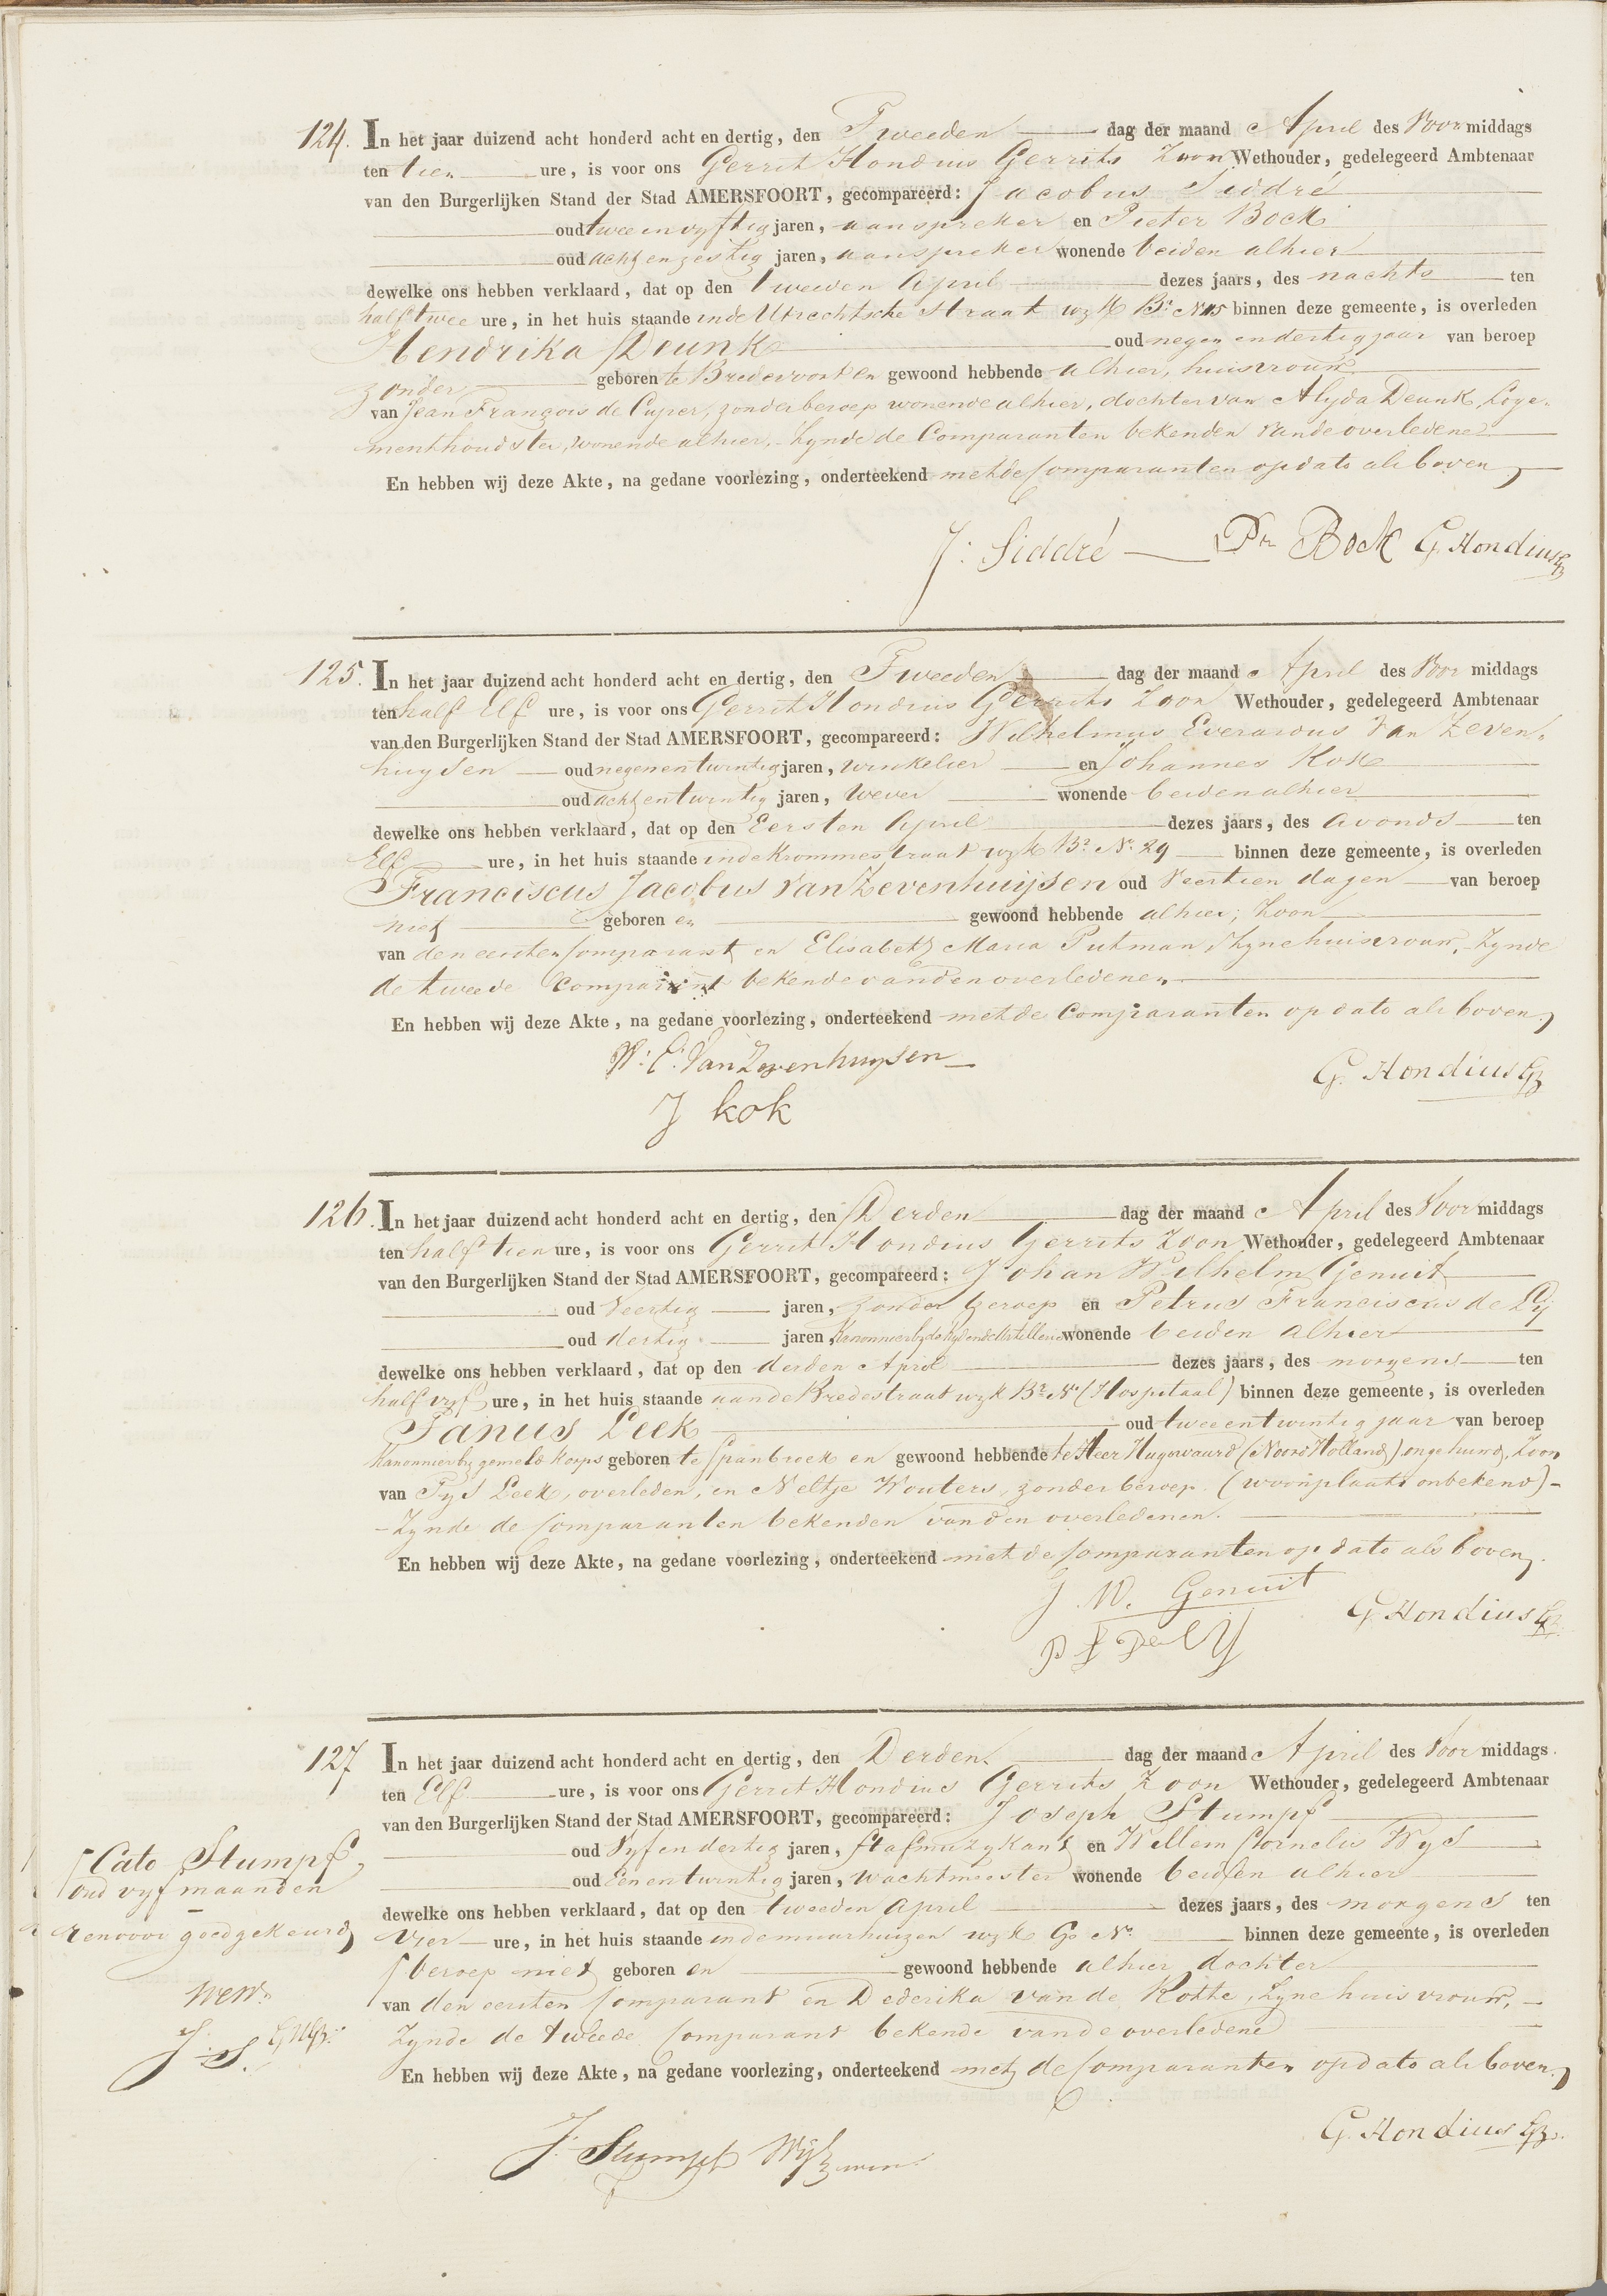 124. In het jaar duizend acht honderd acht en dertig, den Tweeden dag der maand April des Voormiddags
ten tien ure, is voor ons Gerrit Hondius Gerrits Zoon Wethouder, gedelegeerd Ambtenaar
van den Burgerlijken Stand der Stad AMERSFOORT, gecompareerd: Jacobus Siddré
oud twee en vyftig jaren, aanspreker en Pieter Bock
oud acht en zestig jaren, aanspreker wonende beiden alhier
dewelke ons hebben verklaard, dat op den tweeden April dezes jaars, des nachts ten
half twee ure, in het huis staande in de Utrechtsche Straat wyk B: No 15 binnen deze gemeente, is overleden
Hendrika Deunk oud negen en dertig jaar van beroep
zonder geboren te Bredevoort en gewoond hebbende alhier, huisvrouw
van Jean François de Cuper, zonder beroep wonende alhier, dochter van Alyda Deunk, Loge-
menthoudster, wonende alhier, Zynde de Comparanten bekenden van de overledene
En hebben wij deze Akte, na gedane voorlezing, onderteekend met de Comparanten op dato als boven
J: Siddré Pr Bock G. Hondius Gz
125. In het jaar duizend acht honderd acht en dertig, den Tweeden dag der maand April des Voormiddags
ten half Elf ure, is voor ons Gerrit Hondius Gerrits Zoon Wethouder, gedelegeerd Ambtenaar
van den Burgerlijken Stand der Stad AMERSFOORT, gecompareerd: Wilhelmus Everardus Van Zeven-
huysen oud negen en twintig jaren, winkelier en Johannes Kok
oud acht en twintig jaren, wever wonende beiden alhier
dewelke ons hebben verklaard, dat op den Eersten April dezes jaars, des avonds ten
Elf ure, in het huis staande in de Krommestraat wyk B: No 29 binnen deze gemeente, is overleden
Franciscus Jacobus Van Zevenhuijsen oud veertien dagen van beroep
niet geboren en gewoond hebbende alhier, Zoon
van den eersten Comparant en Elisabeth Maria Putman, Zyne huisvrouw, Zynde
de tweede Comparant bekende van den overledenen
En hebben wij deze Akte, na gedane voorlezing, onderteekend met de Comparanten op dato als boven
W: E: Van Zevenhuysen
G. Hondius Gz
J kok
126. In het jaar duizend acht honderd acht en dertig, den Derden dag der maand April des Voormiddags
ten half tien ure, is voor ons Gerrit Hondius Gerrits Zoon Wethouder, gedelegeerd Ambtenaar
van den Burgerlijken Stand der Stad AMERSFOORT, gecompareerd: Johan Wilhelm Genuit
oud Veertig jaren, zonder beroep en Petrus Franciscus de Ly
oud dertig jaren, Kanonnier by de Rydende Artillerie wonende beiden alhier
dewelke ons hebben verklaard, dat op den derden April dezes jaars, des morgens ten
half vyf ure, in het huis staande aan de Bredestraat wyk B: No (Hospitaal) binnen deze gemeente, is overleden
Janus Leek oud twee en twintig jaar van beroep
Kanonnier by gemeld Korps geboren te Spanbroek en gewoond hebbende te Heer Hugowaard (Noord Holland) ongehuwd, Zoon
van Tys Leek, overleden, en Neltje Wouters, zonder beroep (woonplaats onbekend)
Zynde de Comparanten bekenden van den overledenen.
En hebben wij deze Akte, na gedane voorlezing, onderteekend met de Comparanten op dato als boven.
J. W. Genuit
G. Hondius Gz
P F De LY
127 In het jaar duizend acht honderd acht en dertig, den Derden dag der maand April des Voormiddags
ten Elf ure, is voor ons Gerrit Hondius Gerrits Zoon Wethouder, gedelegeerd Ambtenaar
van den Burgerlijken Stand der Stad AMERSFOORT, gecompareerd: Joseph Stumpf
oud Vyf en dertig jaren, Stafmuzykant en Willem Cornelis Wys
oud Een en twintig jaren, wachtmeester wonende beiden alhier
dewelke ons hebben verklaard, dat op den tweeden April dezes jaars, des morgens ten
Vier ure, in het huis staande in de muurhuizen wyk G: No binnen deze gemeente, is overleden
beroep niet geboren en gewoond hebbende alhier dochter
van den eersten Comparant en Dederika van de Kotte, Zyne huisvrouw,
Zynde de tweede Comparant bekende van de overledene
En hebben wij deze Akte, na gedane voorlezing, onderteekend met de Comparanten op dato als boven
Cato Stumpf,
oud vyf maanden
goedgekeurd
J. S.
J. Stumpf
G. Hondius Gz.